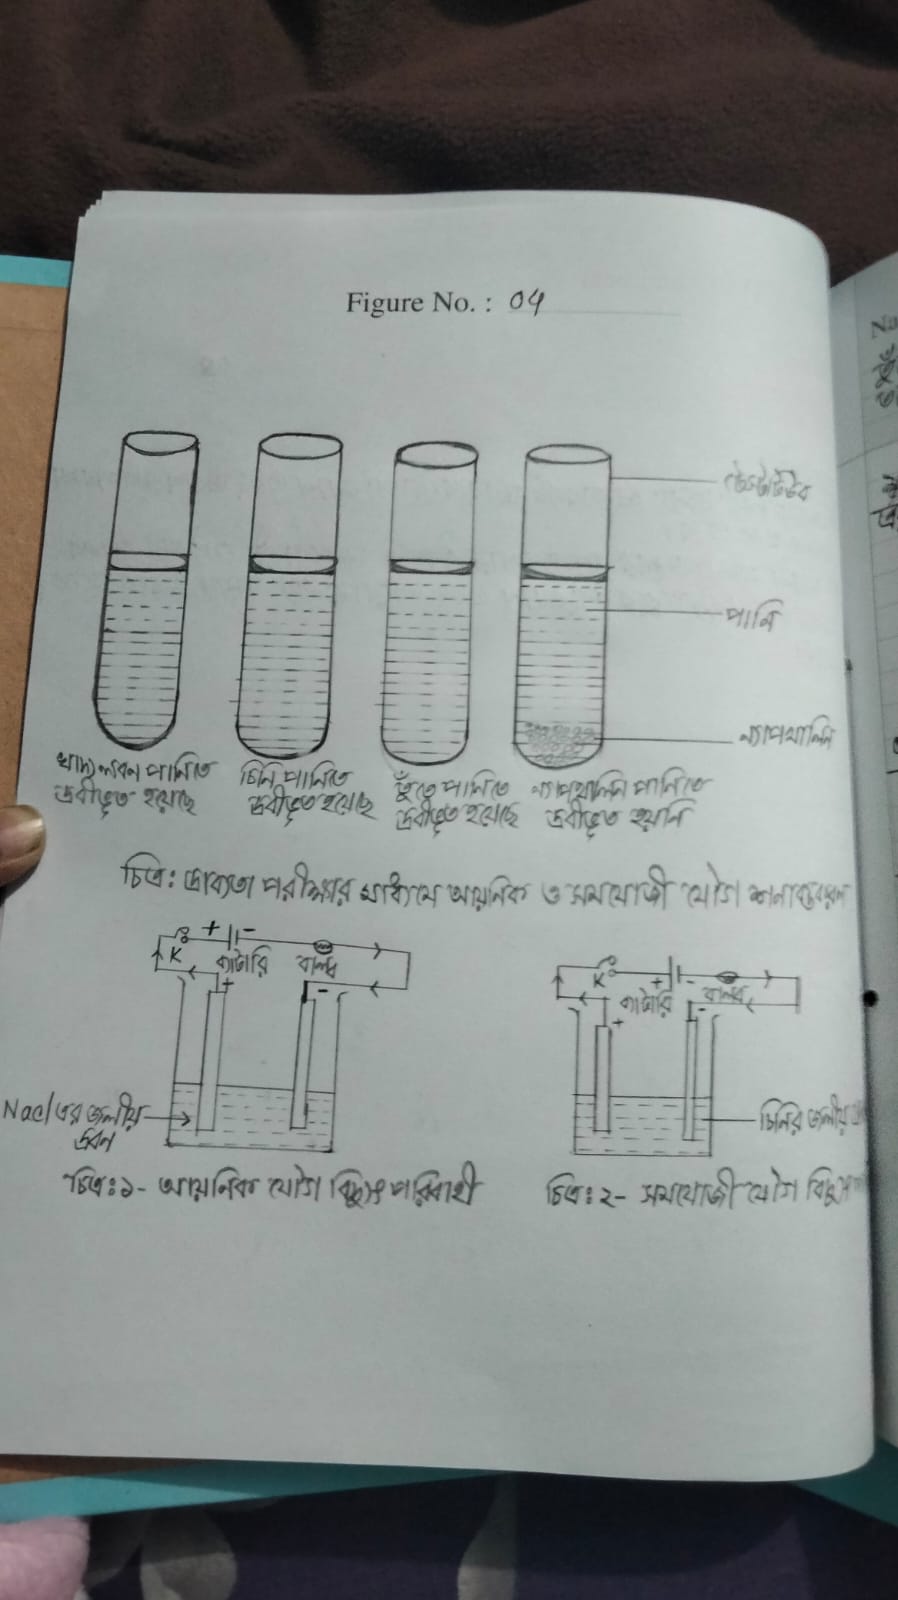 Figure No. : 04
টেস্টটিউব
পানি
ন্যাপথালিন
খাদ্য লবন পানিতে
দ্রবীভূত হয়েছে
চিনি পানিতে
দ্রবীভূত হয়েছে
তুঁতে পানিতে
দ্রবীভূত হয়েছে
ন্যাপথালিন পানিতে
দ্রবীভূত হয়নি
চিত্র: দ্রাব্যতা পরীক্ষার মাধ্যমে আয়নিক ও সমযোজী যৌগ শনাক্তকরন
+ -
K
ব্যাটারি
বাল্ব
+
-
NaCl এর জলীয়
দ্রবন
চিত্র:১- আয়নিক যৌগ বিদ্যুৎ পরিবাহী
K
+ -
ব্যাটারি
বাল্ব
+
-
চিনির জলীয়
চিত্র:২- সমযোজী যৌগ